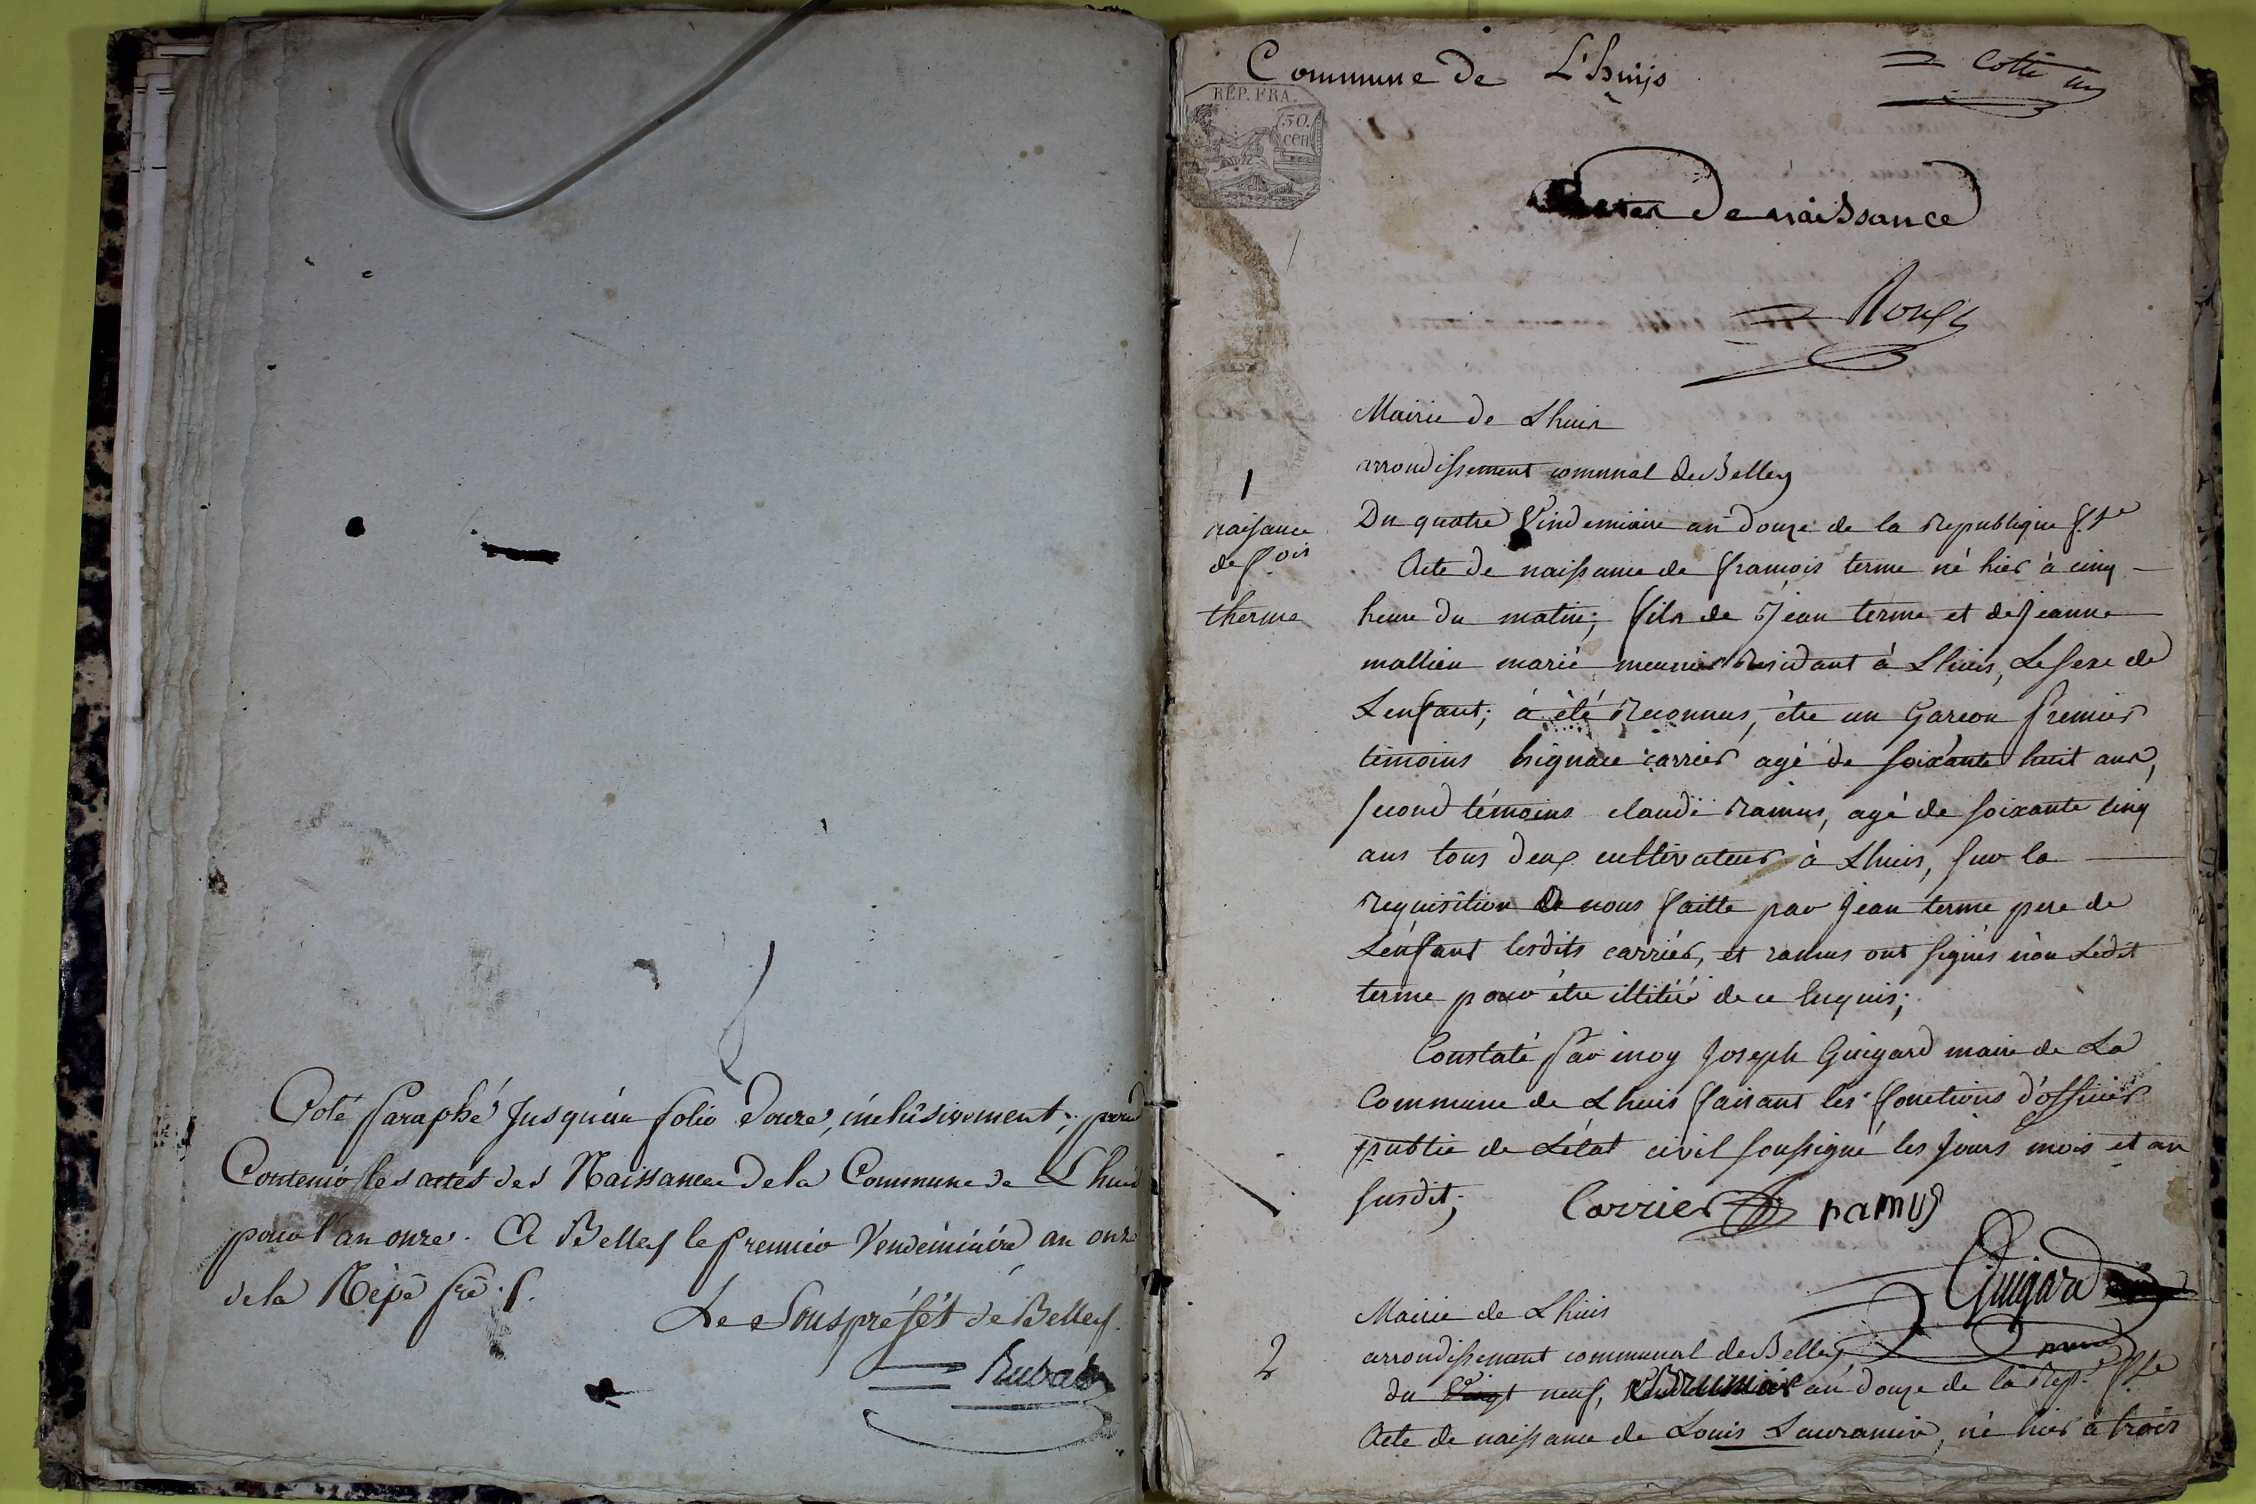 Coté Paraphé Jusqu'au folio douze, inclusivement; pour
Contenir les actes des Naissances de la Commune de Lhuis
pour l'an onze. A Belley le premier Vendemiaire an onze
de la Rép.e fr.e
Le Sousprefet de Belley.
Rubat
Commune de L'huijs
Cotte un
REP. FRA.
50. cen
Actes de naissance
Mairie de Lhuis
arrondissement comunal de Belley
1
naissance
de f.ois
therme
Du quatre Vindemiaire an douze de la Republique f.se
Acte de naissance de francois terme né hier à cinq
heure du matin; fils de Jean terme et de jeanne
mallien marié meunier residant à Lhuis, Le sexe de
Lenfant; à été Reconnus, être un Garcon premier
témoins hignace carrier agé de soixante huit ans,
second témoins claude Ramus, agé de soixante cinq
ans tous deux cultivateur à Lhuis, sur la
requisition de nous faitte par Jean terme pere de
Lenfant lesdits carrier, et ramus ont signés non Ledit
terme pour être illitéré de ce enquis;
Constaté par moy Joseph Guigard maire de La
Commune de Lhuis faisant les fonctions d'officier
public de L'état civil soussigné les jours mois et an
susdit;
Carrier
ramus
Guigard
Mairie de Lhuis
2
arrondissement communal de Belley
du Vingt neuf, Brumaire an douze de la Rep. f.se
Acte de naissance de Louis Lauramin, né hier à trois